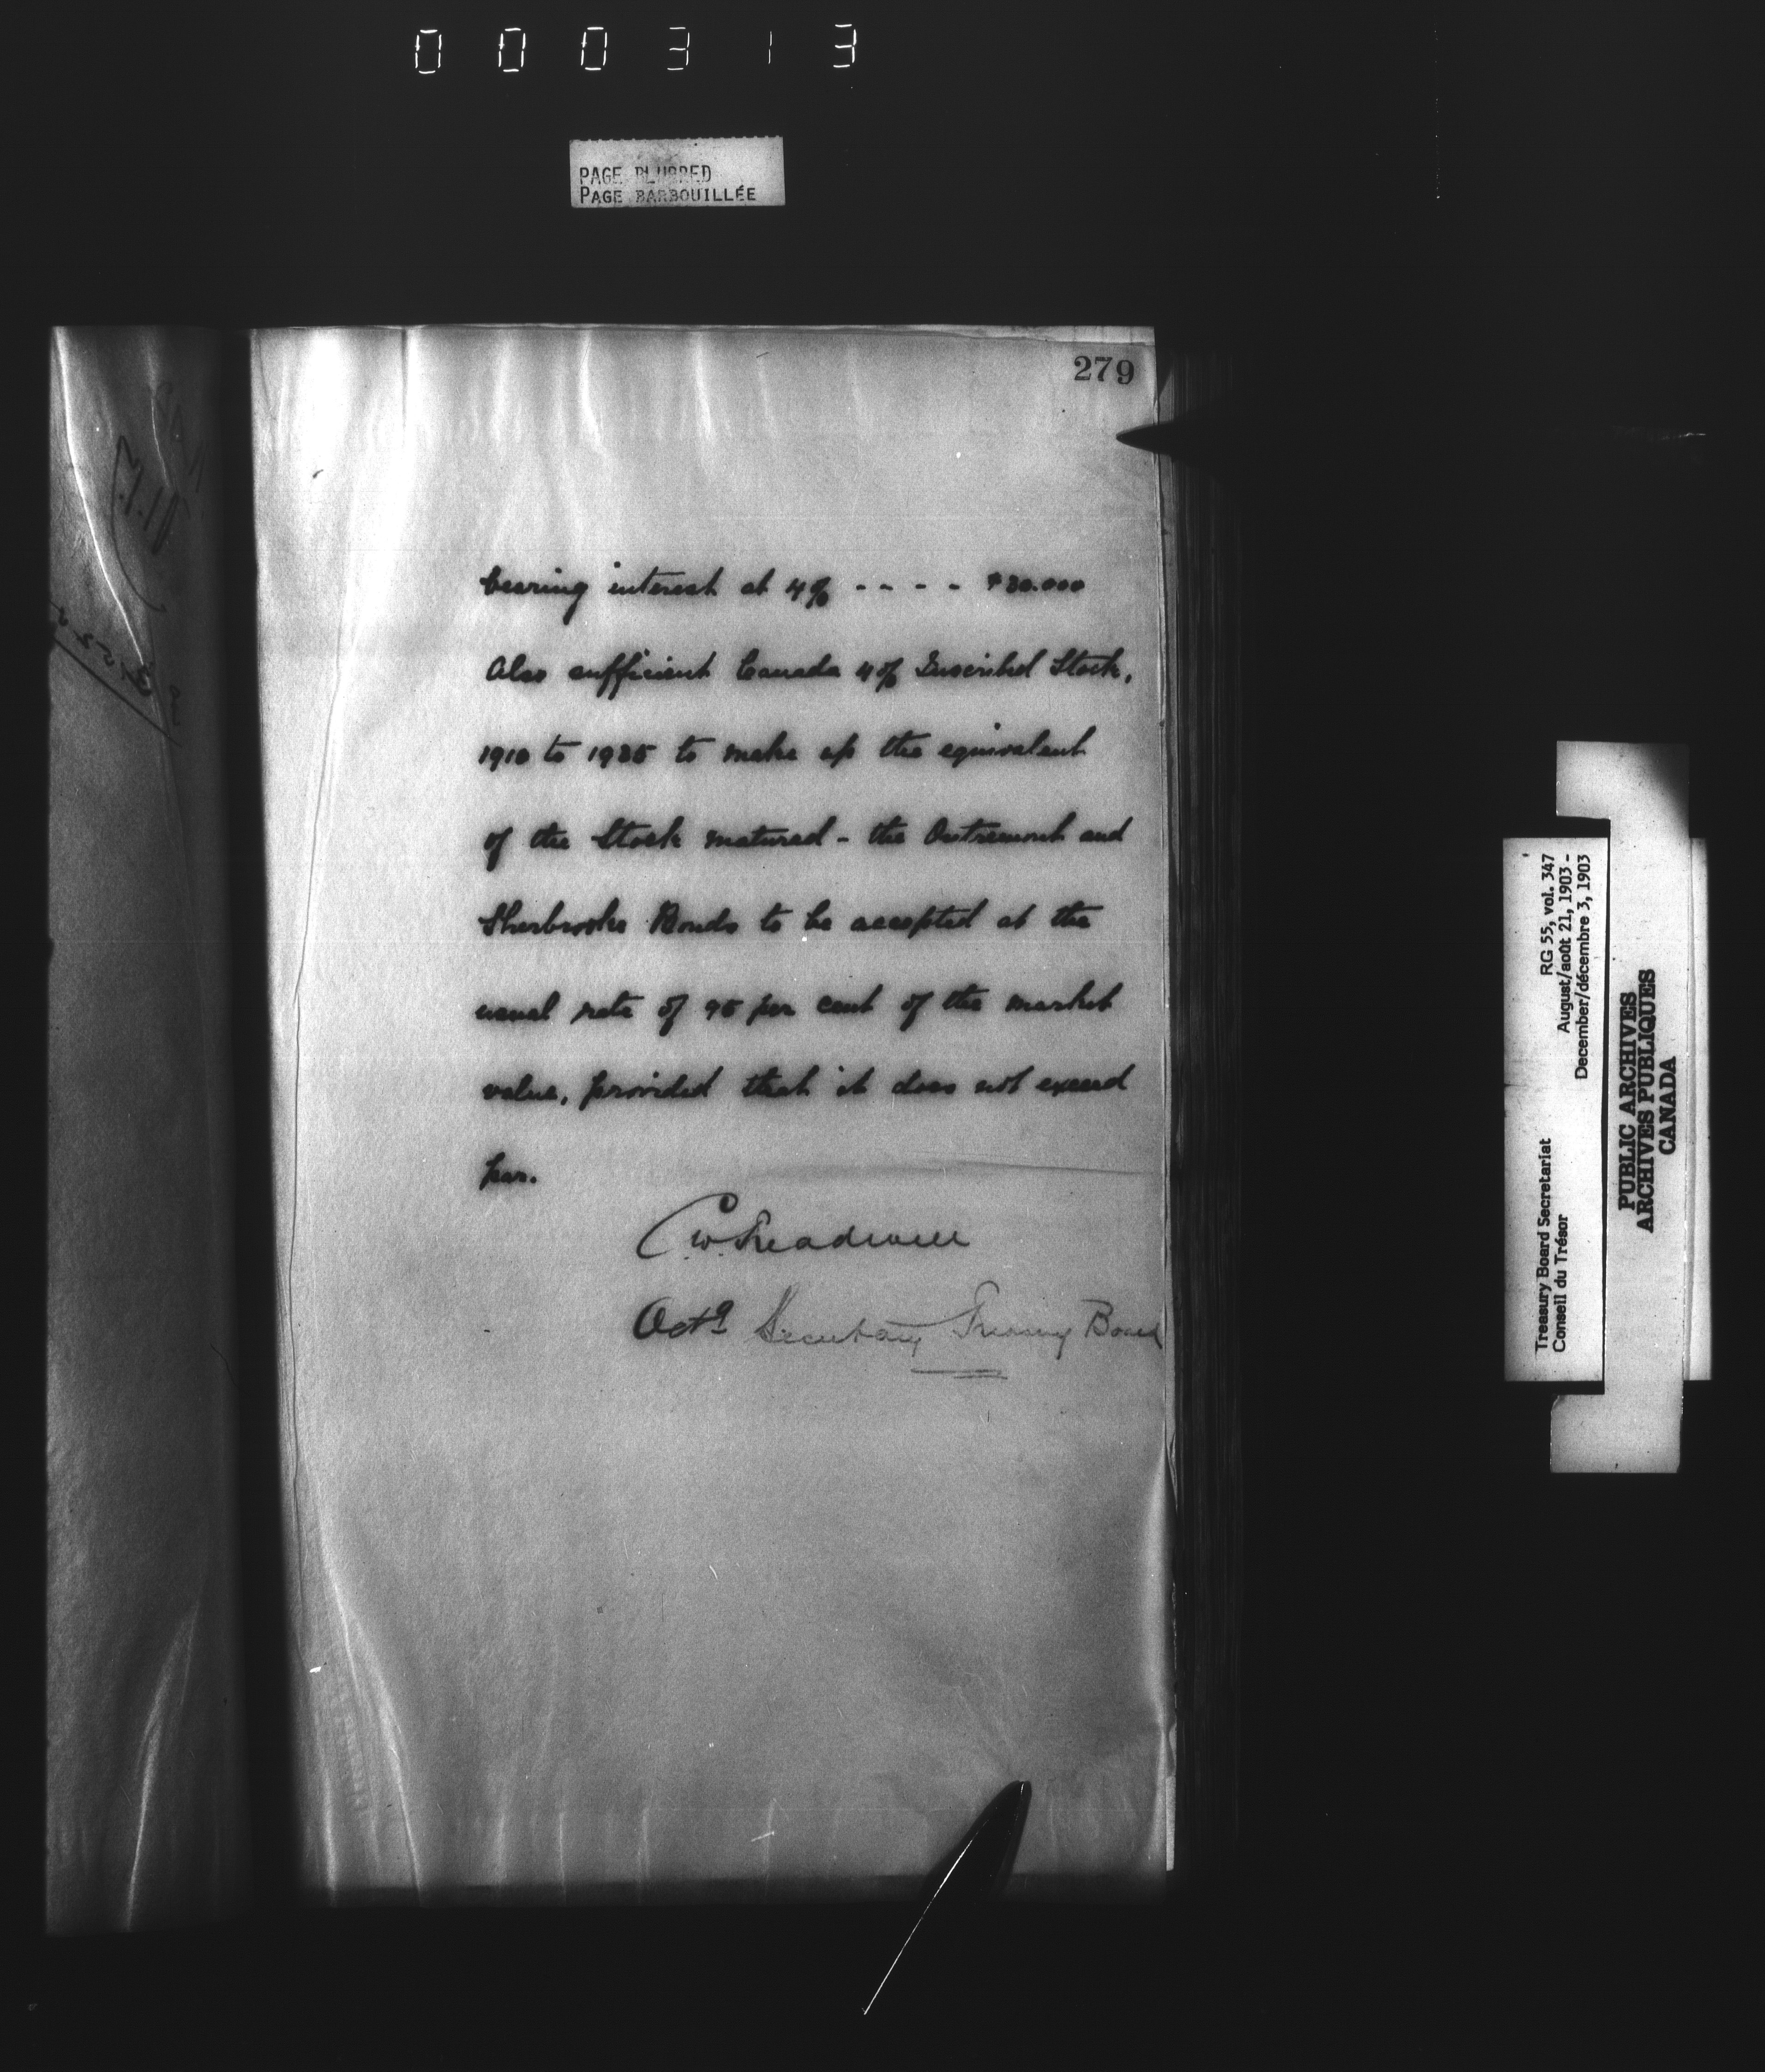 000313
PAGE BLURRED
PAGE BARBOUILLÉE
279
bearing interest at 4% - - - - $30.000
Also sufficient Canada 4% Inscribed Stock,
1910 to 1935 to make up the equivalent
of the Stock matured - the Outremont and
Sherbrooke Bonds to be accepted at the
usual rate of 95 per cent of the market
value, provided that it does not exceed
par.
C. W. Treadwell
Actg Secretary Treasury Board
Treasury Board Secretariat RG 55, vol. 347
Conseil du Trésor August/août 21, 1903 -
December/décembre 3, 1903
PUBLIC ARCHIVES
ARCHIVES PUBLIQUES
CANADA